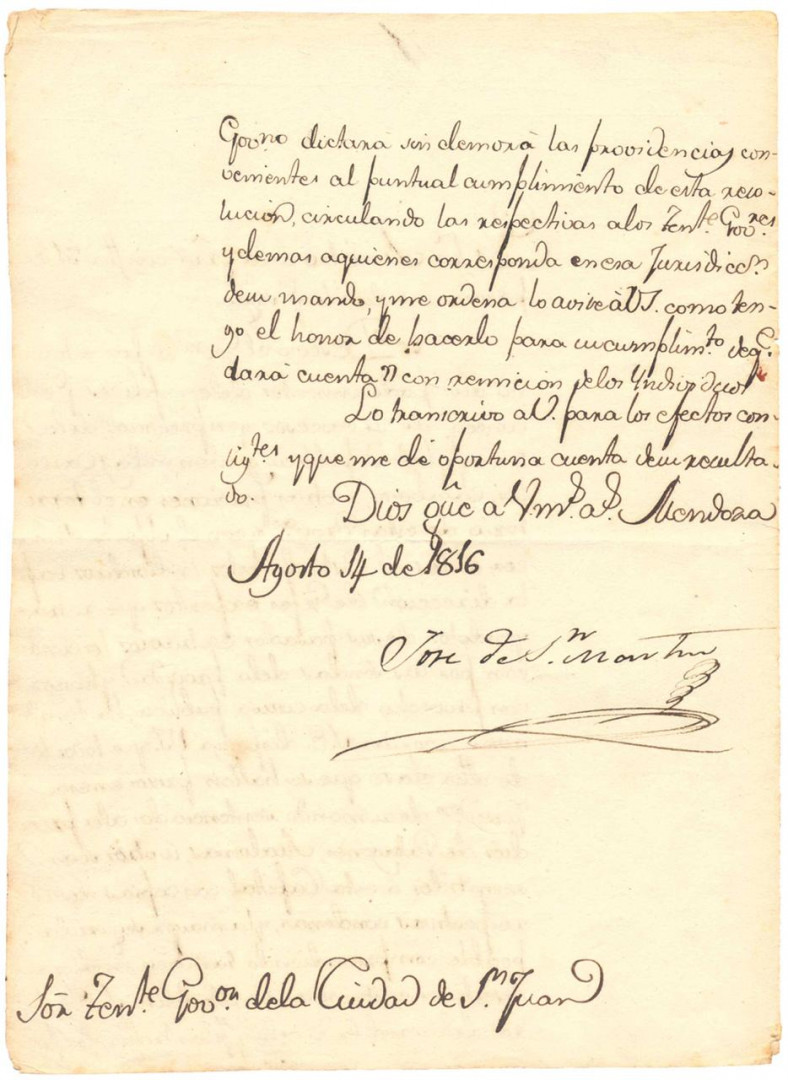 Gov.no dictará sin demora las providencias con-
venientes al puntual cumplimiento de esta reso-
lucion, circulando las respectivas alos Ten.te Gov.res
y demas aquienes corresponda enesa Jurisdicc.n
desu mando, y me ordena lo avise áVS. como ten-
go el honor de hacerlo para su cumplim.to deq.e
dará cuenta con remicion delos Yndios
Lo transcrivo aV. para los efectos con-
sig.tes y que me dé oportuna cuenta desu resulta-
do.
Dios gũe a Vm.s a.s Mendoza
Agosto 14 de 1816
José de S.n Martin
Sõr Ten.te Gov.or dela Ciudad de S.n Juan